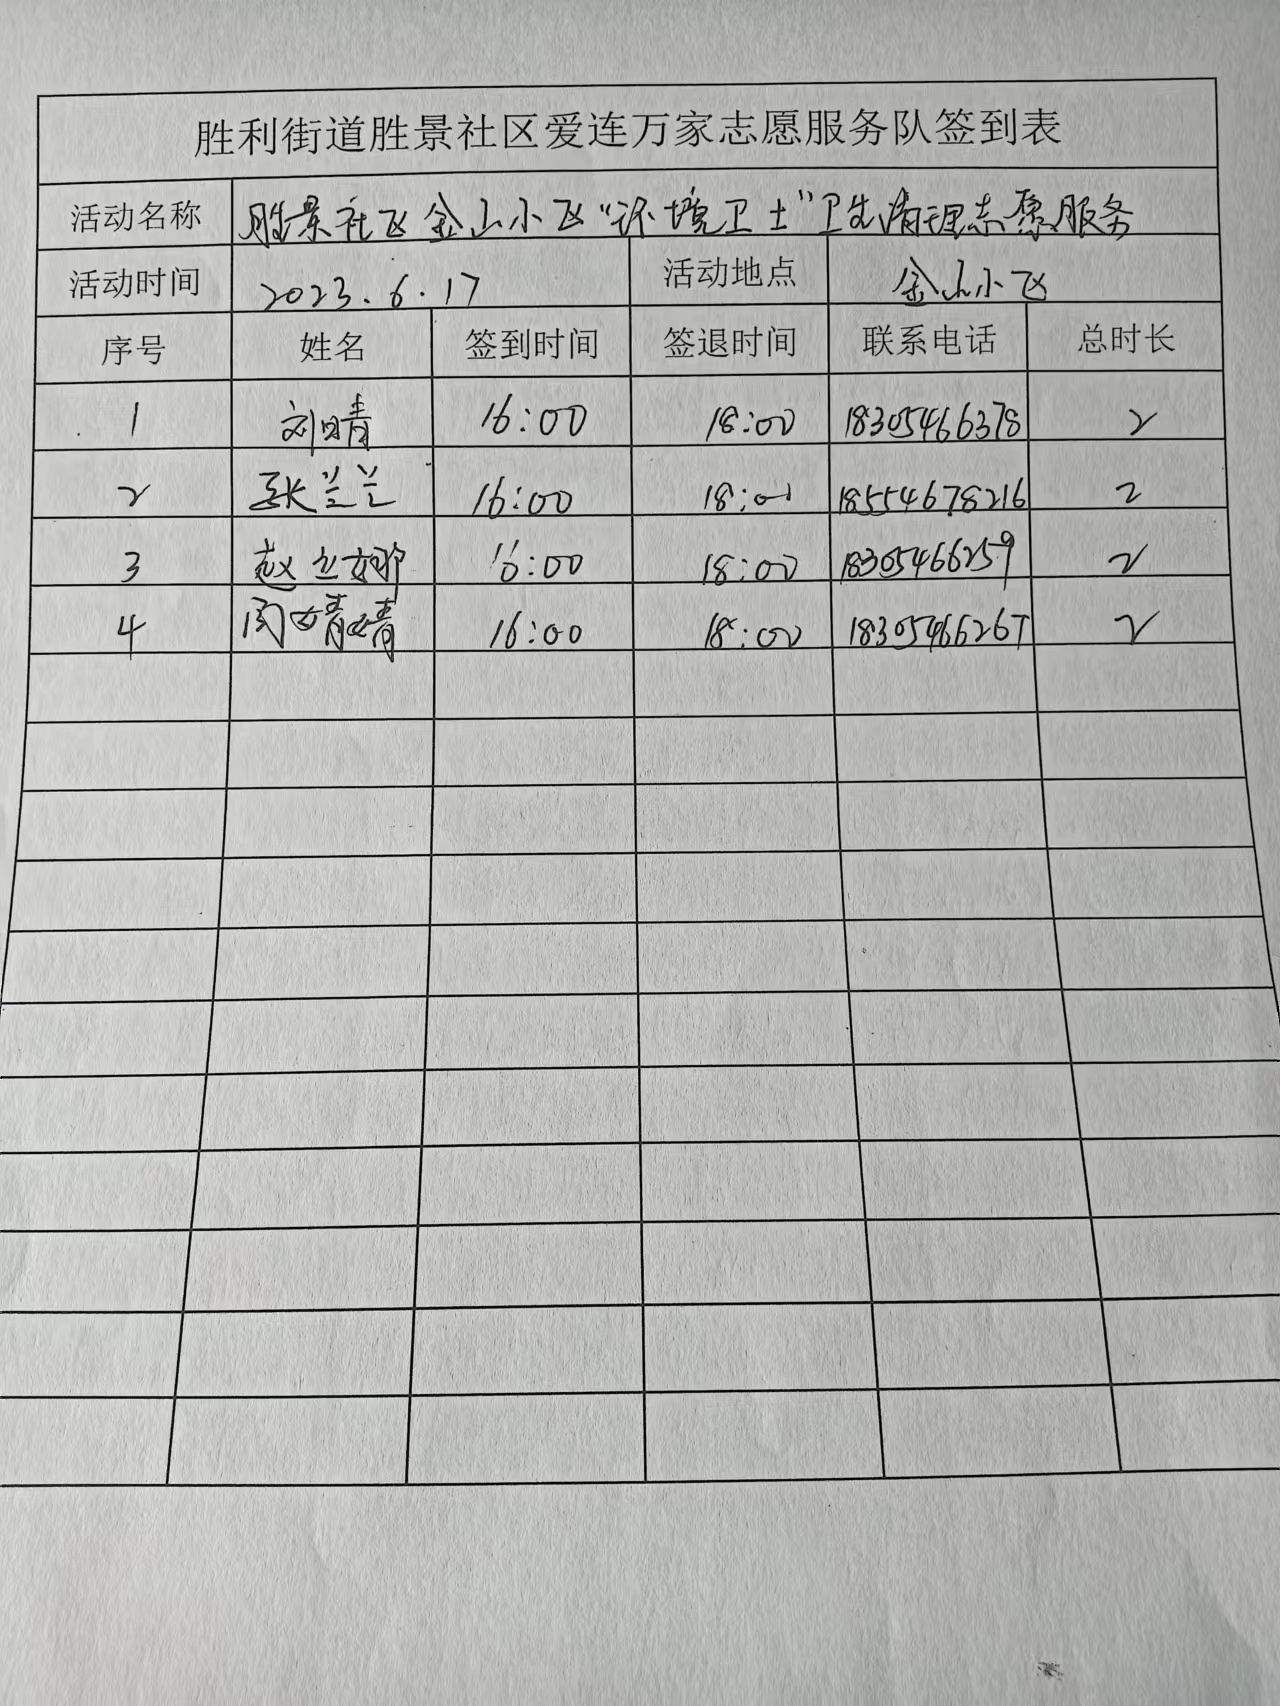 胜利街道胜景社区爱连万家志愿服务队签到表
活动名称 胜景社区金山小区“环境卫士”卫生清理志愿服务
活动时间 2023.6.17 活动地点 金山小区
序号 姓名 签到时间 签退时间 联系电话 总时长
1 刘晴 16:00 18:00 18305466378 2
2 张兰兰 16:00 18:00 18554678216 2
3 赵兰娜 16:00 18:00 18305466259 2
4 闫婧婧 16:00 18:00 18305466267 2